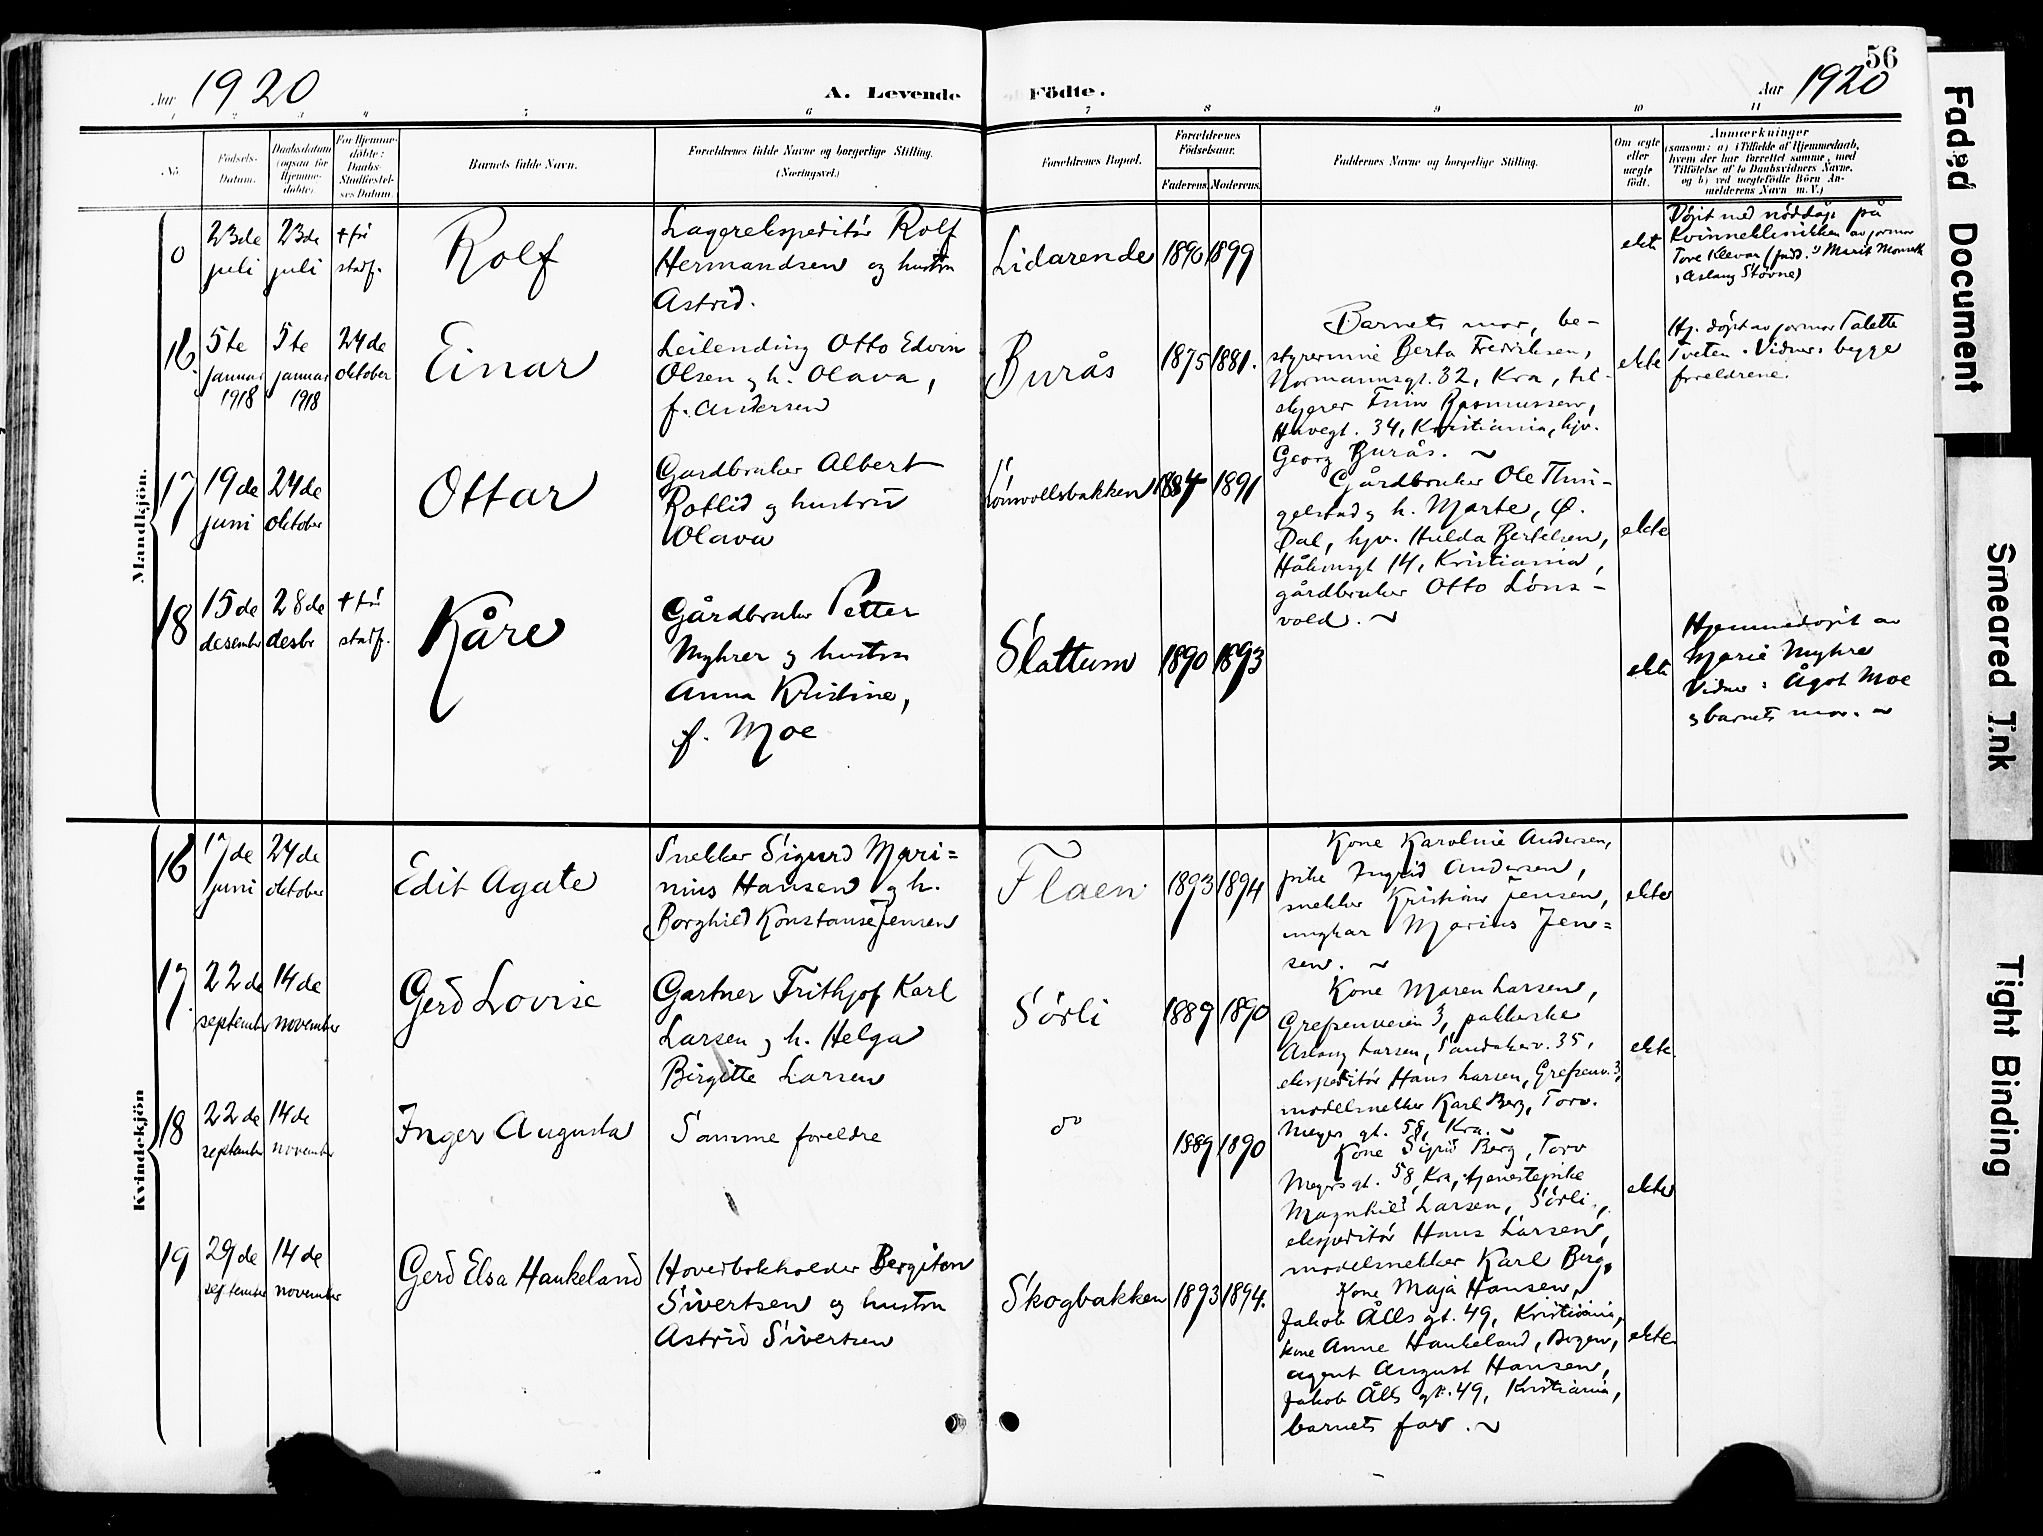 56
Aar 1920
A. Levende
Födte.
Aar 1920
1 2 3 4 5 6 7 8 9 10 11
No.
Födsels-
Datum.
Daabsdatum
(ogsaa for
Hjemme-
döbte).
For Hjemme-
döbte:
Daabs
Stadfæstel-
ses Datum.
Barnets fulde Navn.
Forældrenes fulde Navne og borgerlige Stilling.
(Næringsvei.)
Forældrenes Bopæl.
Forældrenes
Födselsaar.
Faderens. Moderens.
Faddernes Navne og borgerlige Stilling.
Om ægte
eller
uægte
födt.
Anmærkninger
(saasom: a) i Tilfælde af Hjemmedaab,
hvem der har forrettet samme, med
Tilföielse af to Daabsvidners Navne,
og b) ved uægtefödte Börn An-
melderens Navn m. V.)
Mandkjön.
0
23de
juli
23de
juli
+ för
stadf.
Rolf
Lagerekspeditör Rolf
Hermandsen og hustru
Astrid.
Lidarende
1896
1899
ekte
Döpt med nöddåp på
Kvinneklinikken av jormor
Tore Klevar
Aslaug Stövne)
16.
5te
januar
1918
5te
januar
1918
24de
oktober
Einar
Leilending Otto Edvin
Olsen og h. Olava,
f. Andersen
Burås
1875
1881.
Barnets mor, be-
styrerinne Berta Fredriksen,
Normannsgt. 32, Kra, til-
skjærer Finn Rasmussen,
Havegt. 34, Kristiania, hjv.
Georg Burås. ~
ekte
Hj. döpt av jormor Talette
Tveten. Vidner: begge
foreldrene.
17
19de
juni
24de
oktober
Ottar
Gardbruker Albert
Rotlid og hustru
Olava
Lönvollsbakken
1884
1891
Gårdbruker Ole Thin-
gelstad og h. Marte, Ø.
Dal, hjv. Hulda Bertelsen,
Håkonsgt 14, Kristiania,
gårdbruker Otto Löns-
vold. ~
ekte
18
15de
desember
28de
desbr
+ för
stadf.
Kåre
Gårdbruker Petter
Myhrer og hustru
Anna Kristine,
f. Moe
Slattum
1890
1893
ekte
Hjemmedöpt av
Marie Myhre
Vidner: Ågot Moe
og barnets mor. ~
Kvindekjön
16
17de
juni
24de
oktober
Edit Agate
Snekker Sigurd Mari=
nius Hansen og h.
Borghild Konstanse Jensen
Flaen
1893
1894
Kone Karoline Andersen,
pike Ingrid Andersen,
snekker Kristian Jensen,
ungkar Marius Jen=
sen. ~
ekte
17
22de
september
14de
november
Gerd Lovise
Gartner Frithjof Karl
Larsen og h. Helga
Birgitte Larsen
Sörli
1889
1890
Kone Maren Larsen,
Grefsenveien 3, pakkerske
Aslaug Larsen, Sandakerv. 35,
ekspeditör Hans Larsen, Grefsenv. 3,
modelsnekker Karl Berg, Torv.
Meyers gt. 58, Kra. ~
ekte.
18
22de
september
14de
november
Inger Augusta
Samme foreldre
do
1889
1890
Kone Sigrid Berg, Torv
Meyers gt. 58, Kra, tjenestepike
Magnhild Larsen, Sörli,
ekspeditör Hans Larsen,
modelsnekker Karl Berg.
ekte
19
29de
september
14de
november
Gerd Elsa Haukeland
Hovedbokholder Bergiton
Sivertsen og hustru
Astrid Sivertsen
Skogbakken
1893
1894.
Kone Maja Hansen,
Jakob Ålls gt. 49, Kristiania,
kone Anne Haukeland, Bogen,
agent August Hansen,
Jakob Ålls gt. 49, Kristiania,
barnets far. ~
ekte
Faded Document
Smeared Ink
Tight Binding